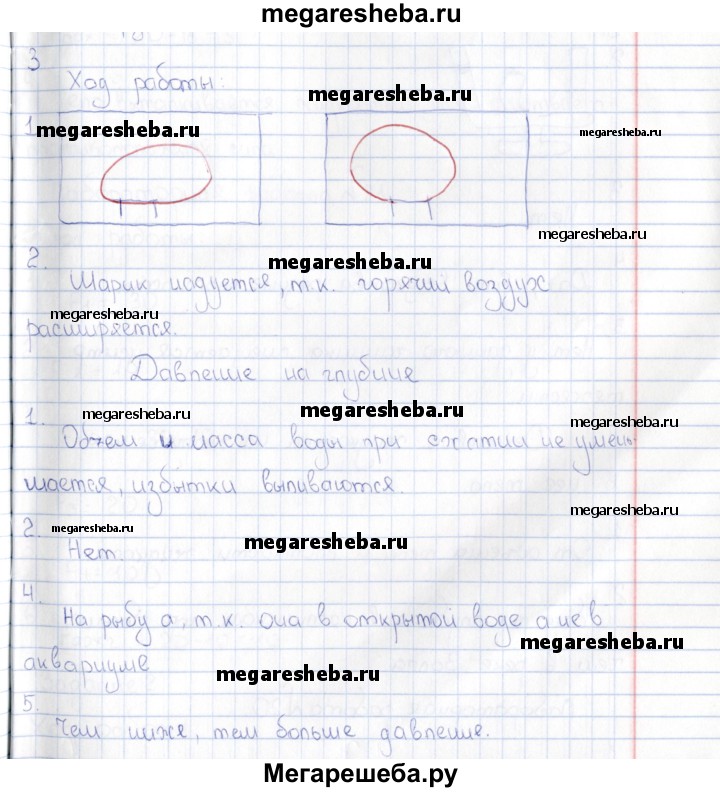 megaresheba.ru
3
Ход работы:
megaresheba.ru
1
megaresheba.ru
megaresheba.ru
megaresheba.ru
2.
megaresheba.ru
Шарик надуется, т.к. горячий воздух
megaresheba.ru
расширяется.
Давление на глубине
1.
megaresheba.ru
megaresheba.ru
megaresheba.ru
Объем и масса воды при сжатии не умень-
шается, избытки выливаются.
megaresheba.ru
2.
megaresheba.ru
megaresheba.ru
Нет.
4.
На рыбу а, т.к. она в открытой воде а не в
megaresheba.ru
аквариуме
megaresheba.ru
5.
Чем ниже, тем больше давление.
Мегарешеба.ру